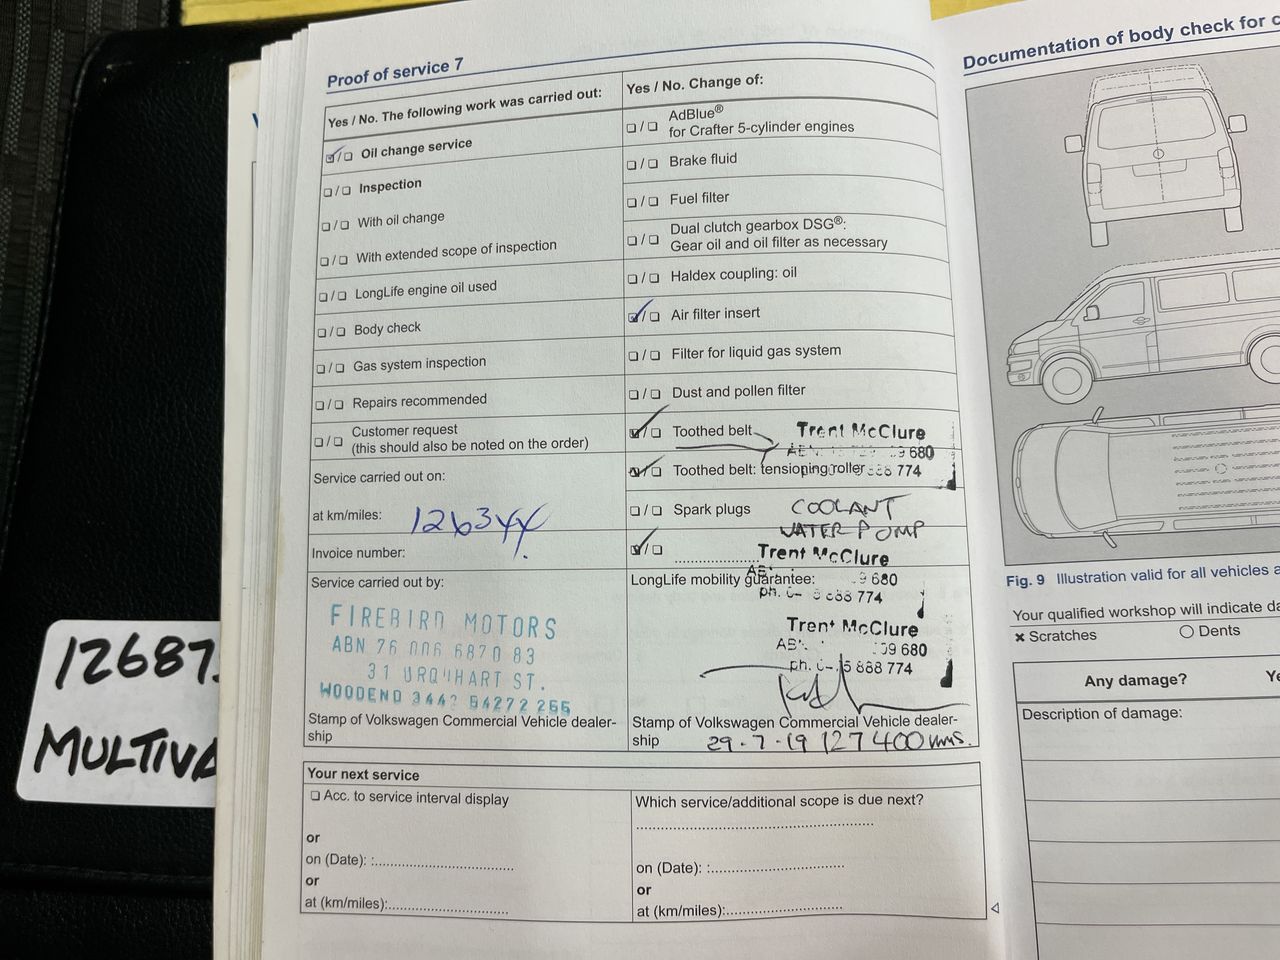 Proof of service 7
Yes / No. The following work was carried out:
☑/❏ Oil change service
❏/❏ Inspection
❏/❏ With oil change
❏/❏ With extended scope of inspection
❏/❏ LongLife engine oil used
❏/❏ Body check
❏/❏ Gas system inspection
❏/❏ Repairs recommended
❏/❏ Customer request
(this should also be noted on the order)
Service carried out on:
at km/miles: 126344
Invoice number:
Service carried out by:
FIREBIRD MOTORS
ABN 76 006 6870 83
31 URQUHART ST.
WOODEND 3442 54272 266
Stamp of Volkswagen Commercial Vehicle dealer-
ship
Yes / No. Change of:
❏/❏ AdBlue®
for Crafter 5-cylinder engines
❏/❏ Brake fluid
❏/❏ Fuel filter
❏/❏ Dual clutch gearbox DSG®:
Gear oil and oil filter as necessary
❏/❏ Haldex coupling: oil
☑/❏ Air filter insert
❏/❏ Filter for liquid gas system
❏/❏ Dust and pollen filter
☑/❏ Toothed belt
Trent McClure
680
☑/❏ Toothed belt: tensioning roller
774
❏/❏ Spark plugs
COOLANT
WATER PUMP
☑/❏
Trent McClure
LongLife mobility guarantee:
9 680
ph. 774
Trent McClure
680
ph. 888 774
Stamp of Volkswagen Commercial Vehicle dealer-
ship
29-7-19 127400 kms.
Your next service
❏ Acc. to service interval display
or
on (Date): :
or
at (km/miles):
Which service/additional scope is due next?
on (Date): :
or
at (km/miles):
Documentation of body check for
Fig. 9 Illustration valid for all vehicles
Your qualified workshop will indicate
× Scratches ○ Dents
Any damage?
Description of damage:
12687
MULTIVA